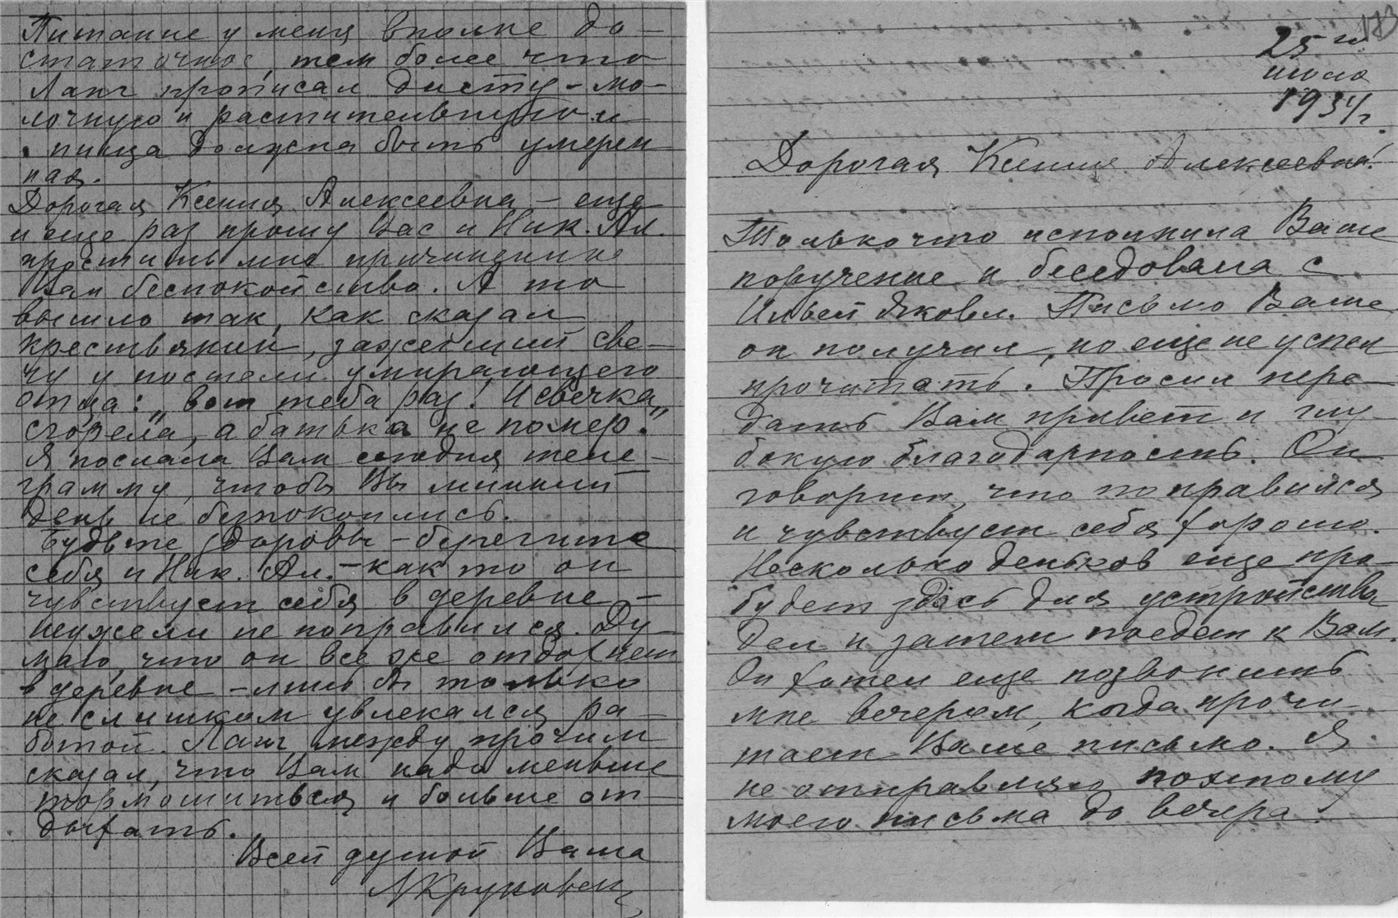 Питание у меня вполне до-
статочное, тем более что
Ланг прописал диэту - мо-
лочную и растительную и
пища должна быть умерен
ная.
Дорогая Ксения Алексеевна, - еще
и еще раз прошу Вас и Ник. Ал.
простить мне причинение
Вам беспокойства. А то
вышло так, как сказал
крестьянин, зажегший све-
чу у постели умирающего
отца: „вот тебе раз! И свечка
сгорела, а батька не помер."
Я послала Вам сегодня теле-
грамму, чтобы Вы лишний
день не беспокоились.
Будьте здоровы - берегите
себя и Ник. Ал. - как то он
чувствует себя в деревне -
неужели не поправился. Ду-
маю, что он все же отдохнет
в деревне - лишь бы только
не слишком увлекался ра-
ботой. Ланг между прочим
сказал, что Вам надо меньше
тормошиться и больше от-
дыхать.
Всей душой Ваша
25 го
июля
1934 г.
Дорогая Ксения Алексеевна!
Только что исполнила Ваше
поручение и беседовала с
Ильей Яковл. Письмо Ваше
он получил, но еще не успел
прочитать. Просил пере-
дать Вам привет и глу
бокую благодарность. Он
говорит, что поправился
и чувствует себя хорошо.
Несколько деньков еще про
будет здесь для устройства
дел и затем поедет к Вам
Он хотел еще позвонить
мне вечером, когда прочи-
тает Ваше письмо. Я
не отправляю поэтому
моего письма до вечера.